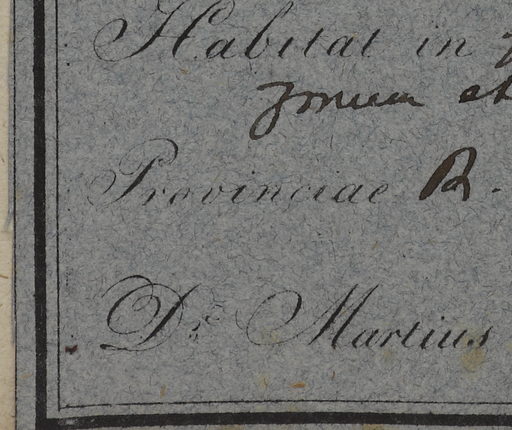 Habitat in
Provinciae R.
Dr. Martius